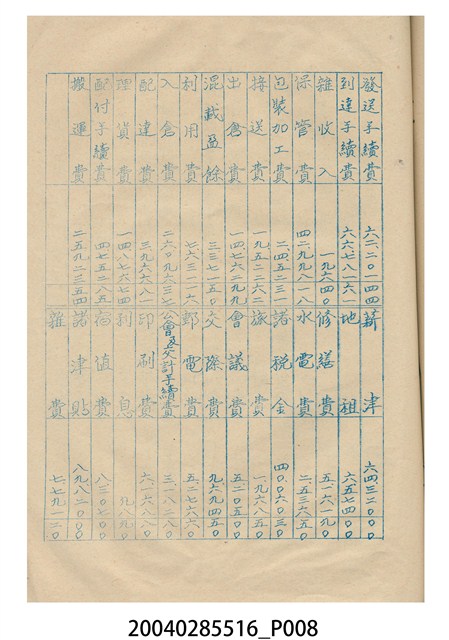 發送手續費 六二、二〇一四四
到達手續費 六六、七八一六一
雜收入 一九六四〇
保管費 四二、九九八一八
包裝加工費 二、四五二三一
接送費 一九、五二二六二
出倉費 一四、七六二九九
混載盈餘 三三七一五〇
利用費 七、六三一一六
入倉費 二六〇、九六三七
配達費 三、九六六八一
理貨費 一四八七六七四
配付手續費 四七五二八五
搬運費 二二五、九二二五四
薪津 六四三二〇〇〇
地租 六、五七四〇〇
修繕費 五、一六一九〇
水電費 二、五三六五〇
諸稅金 四〇、〇六〇三〇
旅費 一、九六八五〇
會議費 五、二〇五〇〇
交際費 九、六九四五〇
郵電費 五、二七六六〇
公會及交計手續費 三、一八二八〇
印刷費 六一六八八〇
利息 九八九〇
宿值費 八二〇七〇〇
諸津貼 八九、八二〇〇〇
雜費 七、七九一二〇
20040285516_P008